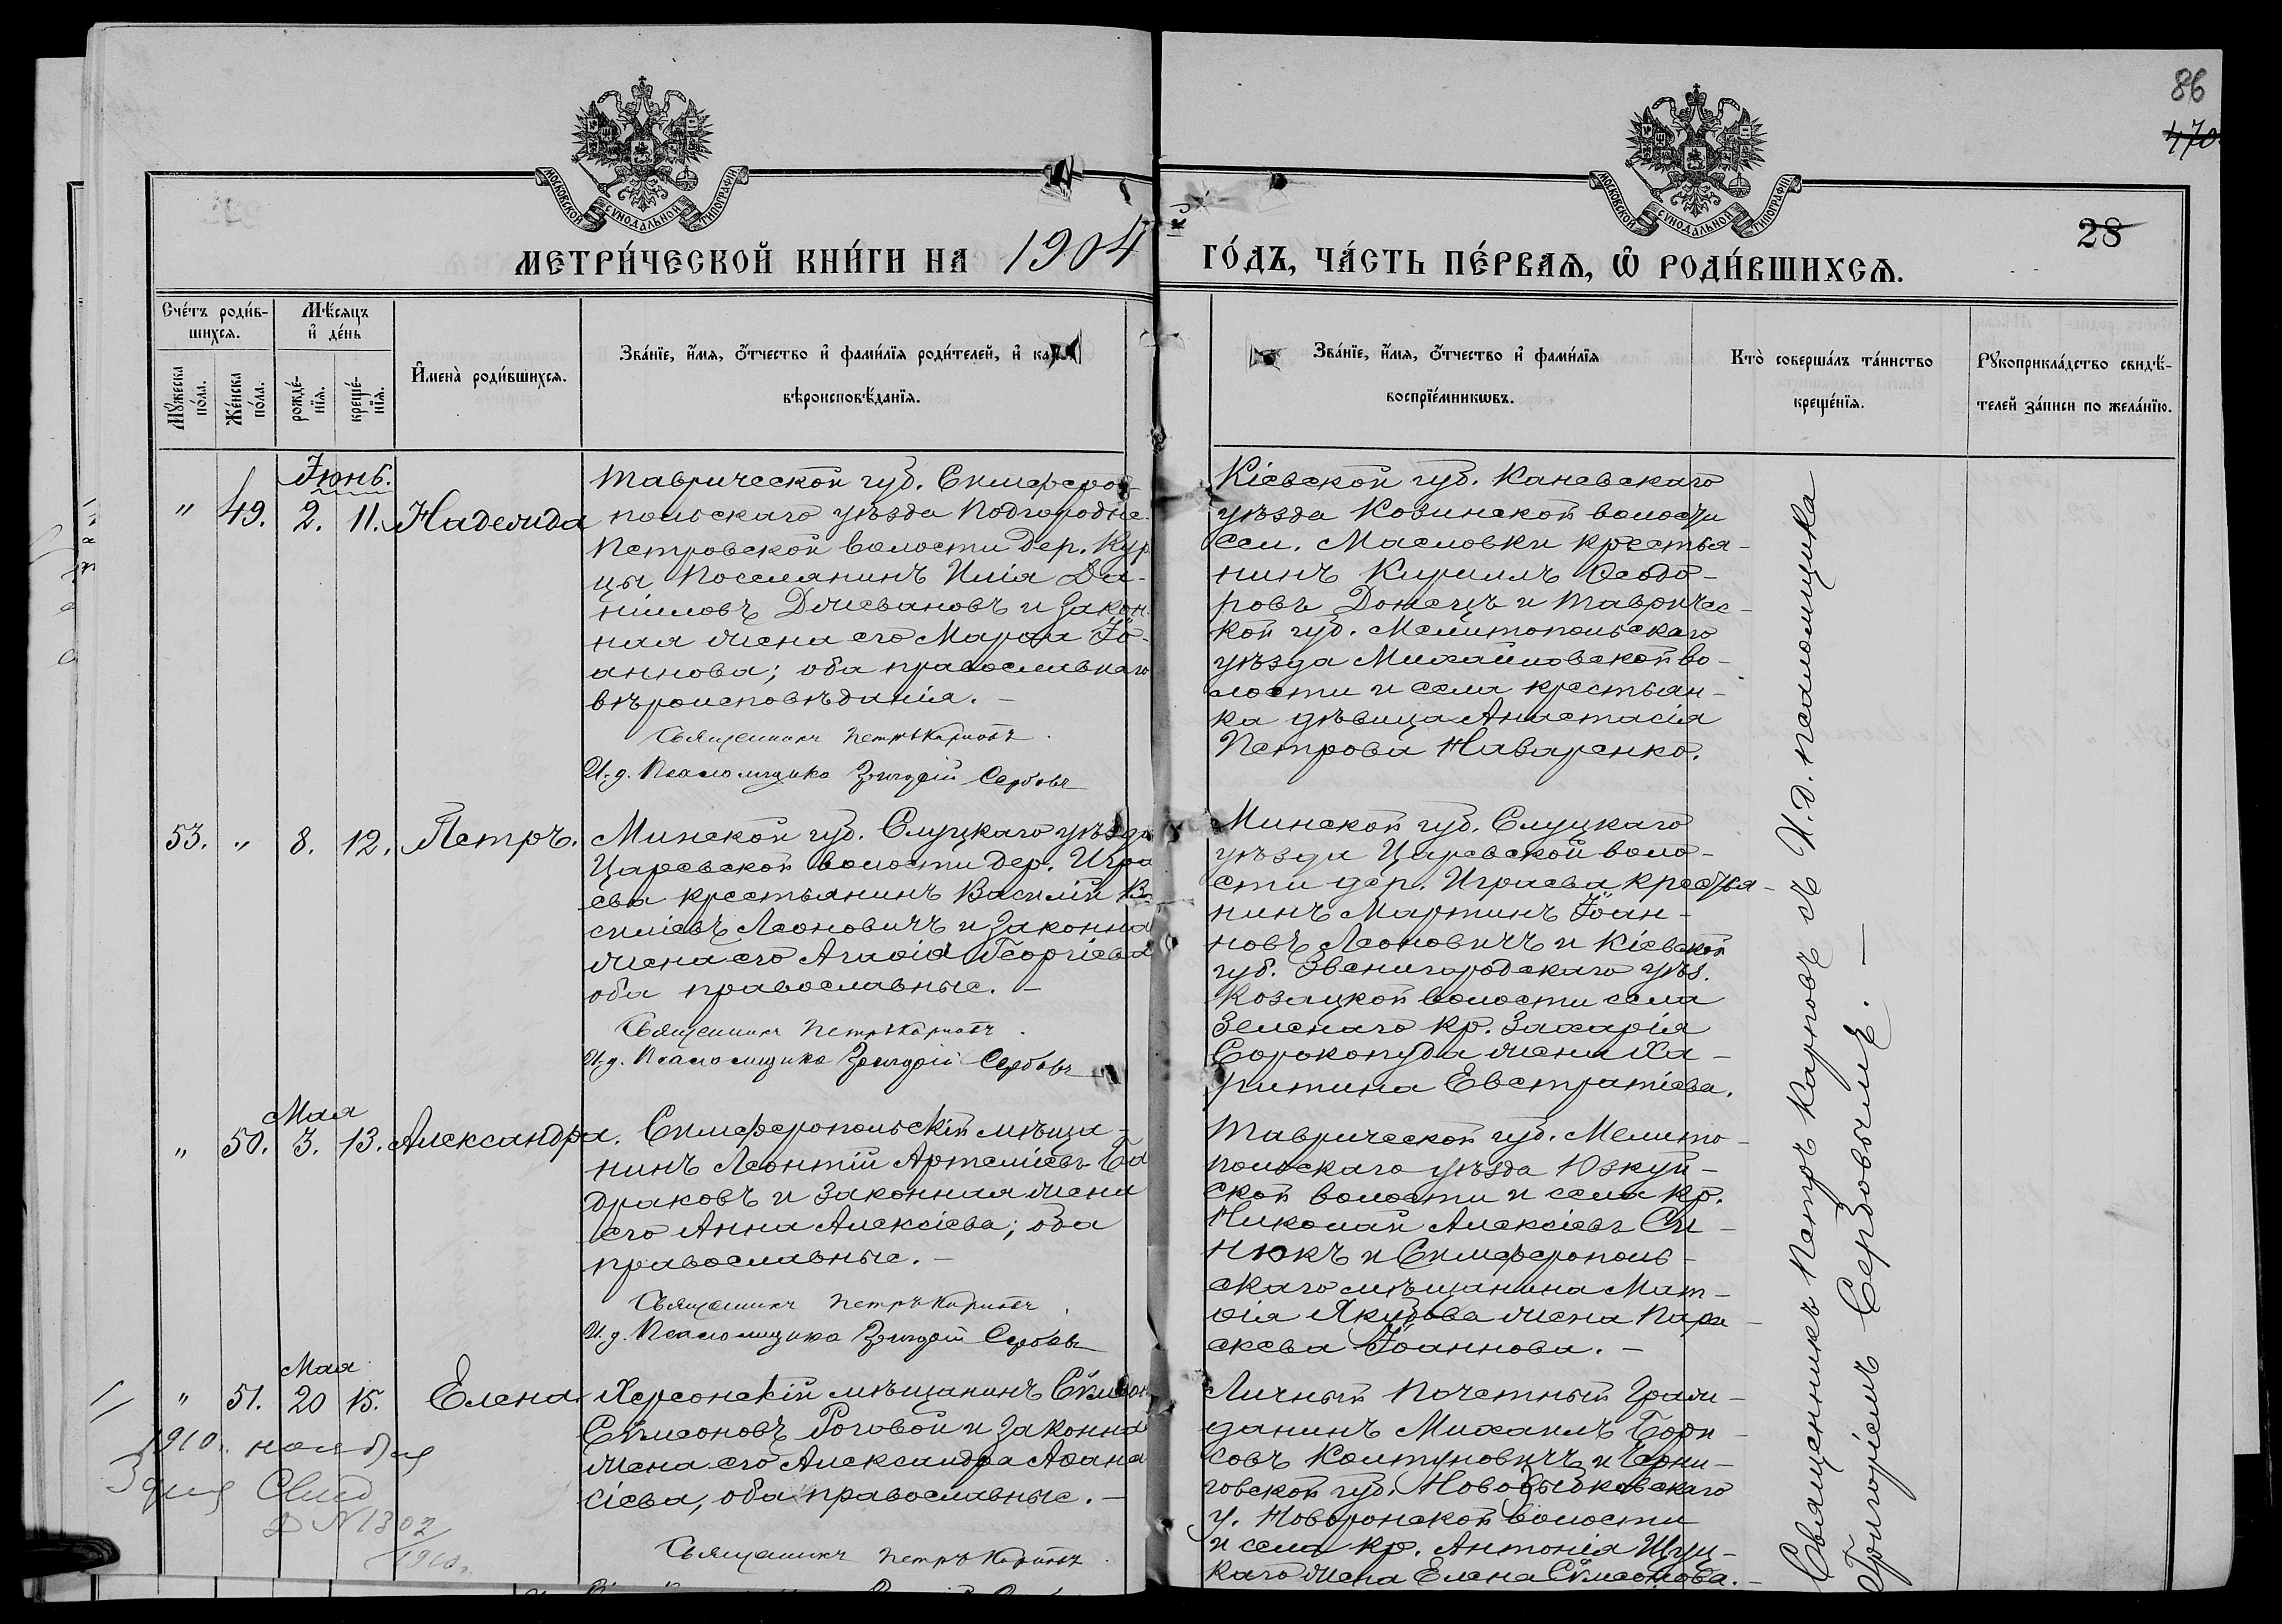 86
470
28
МОСКОВСКОЙ СѴНОДАЛЬНОЙ ТИПОГРАФІИ
МОСКОВСКОЙ СѴНОДАЛЬНОЙ ТИПОГРАФІИ
МЕТРИ́ЧЕСКОЙ КНИ́ГИ НА 1904
ГО́ДЪ, ЧА́СТЬ ПЕ́РВАѦ, Ѡ҆ РОДИ́ВШИХСѦ.
Сче́тъ роди́в-
шихсѧ.
Мѣ́сѧцъ
и҆ де́нь
Мꙋ́жеска
по́ла.
Же́нска
по́ла.
рожде́-
нїѧ.
креще́-
нїѧ.
И҆мена̀ роди́вшихсѧ.
Зва́нїе, и҆́мѧ, ѻ҆́тчество и҆ фами́лїѧ роди́телей, и҆
вѣроисповѣ́данїѧ.
Зва́нїе, и҆́мѧ, ѻ҆́тчество и҆ фами́лїѧ
воспрїе́мникѡвъ.
Кто̀ соверша́лъ та́инство
креще́нїѧ.
Рꙋкоприкла́дство свидѣ́-
телей за́писи по жела́нїю.
Іюнь.
" 49. 2. 11. Надежда
Таврической губ. Симферо-
польскаго уѣзда Подгородне-
Петровской волости дер. Кур
цы поселянинъ Илія Да-
ніиловъ Длчевановъ и закон-
ная жена его Марѳа Іо-
аннова; оба православнаго
вѣроисповѣданія. –
Священникъ Петръ Карповъ.
И. д. Псаломщика Григорій Сербовъ
Кіевской губ. Каневскаго
уѣзда Козинской волости
сел. Масловки крестья-
нинъ Кириллъ Ѳеодо-
ровъ Донецъ и Тавричес-
кой губ. Мелитопольскаго
уѣзда Михайловской во-
лости и села крестьян-
ка дѣвица Анастасія
Петрова Назаренко.
53. " 8. 12. Петръ.
Минской губ. Слуцкаго уѣзда
Царевской волости дер. Игра
ева крестьянинъ Василій Ва
силіевъ Леоновичъ и законна
жена его Агаѳія Георгіева
оба православные. –
Священникъ Петръ Карповъ.
И. д. Псаломщика Григорій Сербовъ
Минской губ. Слуцкаго
уѣзда Царевской воло-
сти дер. Играева крестья-
нинъ Мартинъ Іоан-
новъ Леоновичъ и Кіевской
губ. Звенигородскаго уѣз.
Козацкой волости села
Зеленаго кр. Захарія
Сорокопуда жена Ха-
ритина Евстратіева.
Мая
" 50. 3. 13. Александра.
Симферопольскій мѣща-
нинъ Леонтій Артеміевъ Ба
драковъ и законная жена
его Анна Алексіева; оба
православные. –
Священникъ Петръ Карповъ.
И. д. Псаломщика Григорій Сербовъ
Таврической губ. Мелито-
польскаго уѣзда Юзкуй-
ской волости и села кр.
Николай Алексіевъ Си-
нюкъ и Симферополь-
скаго мѣщанина Мат-
ѳія Якубова жена Пара-
скева Іоаннова. –
Мая
" 51. 20 15. Елена.
Херсонскій мѣщанинъ Сѵмеон
Сѵмеоновъ Роговой и законна
жена его Александра Аѳана
сіева, оба православные. –
Священникъ Петръ Карповъ.
1910. ноября
3 дня Свид
№ 1302
1910г.
Личный почетный граж-
данинъ Михаилъ Бори-
совъ Колтуновичъ и Черни-
говской губ. Новозыбковскаго
у. Новоронской волости
и села кр. Антонія Щуц-
каго жена Елена Сѵмеонова. –
Священникъ Петръ Карповъ съ И. д. псаломщика
Григоріемъ Сербовымъ. –